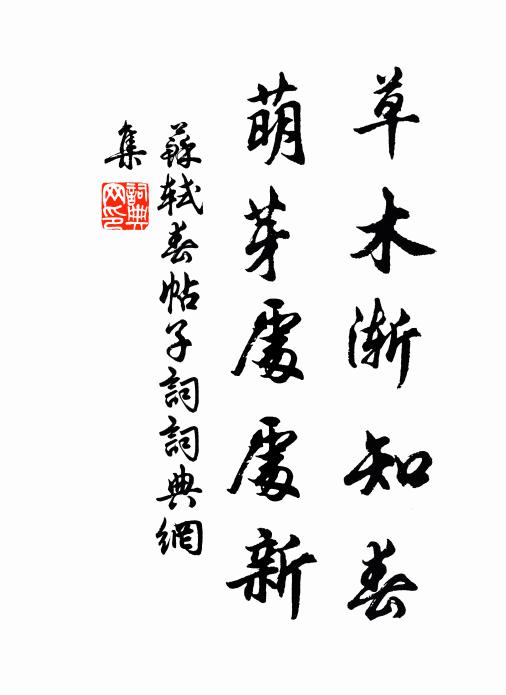 草木漸知春
萌芽處處新
蘇軾春帖子詞詞典網
集
詞典
网印